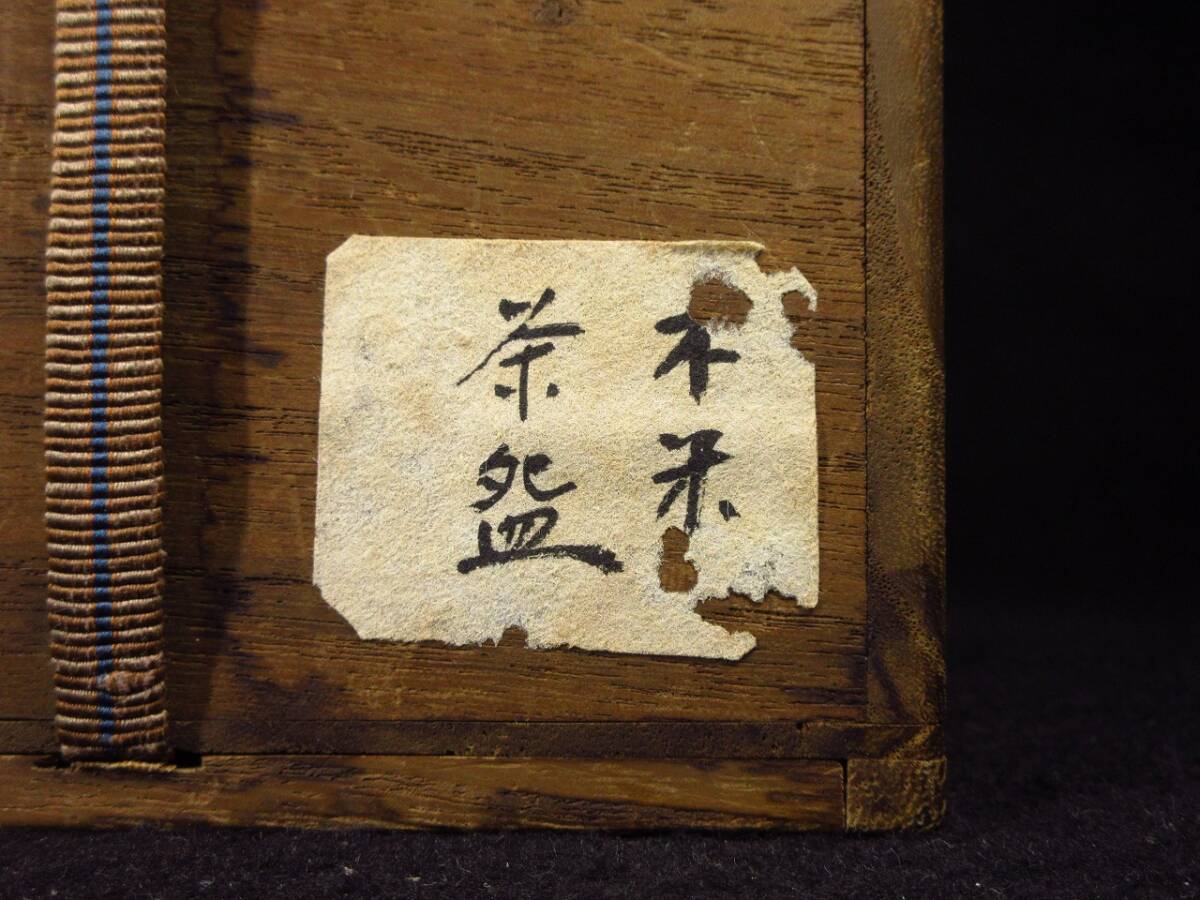 木米
茶盌